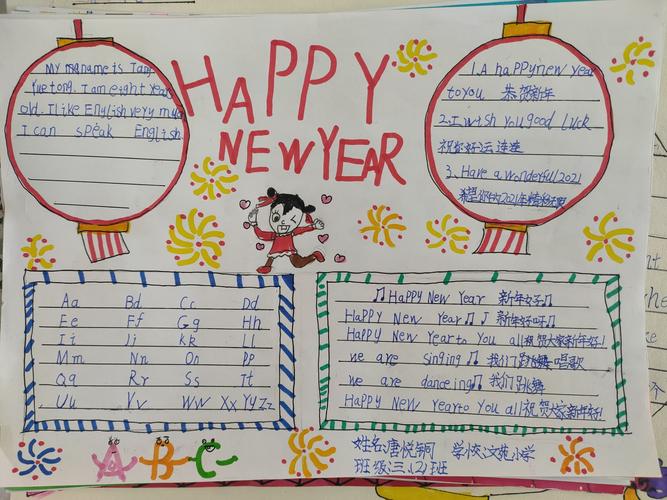 HAPPY
NEW YEAR
My name is Tang
Yuetong. I am eight years
old. I like English very much
I can speak English
1. A happy new year
to you 恭贺新年
2. I wish you good luck
祝你好运连连
3. Have a wonderful 2021
2021年
Aa Bd Cc Dd
Ee Ff Gg Hh
Ii Jj Kk Ll
Mm Nn On Pp
Qq Rr Ss Tt
Uu Vv Ww Xx Yy Zz
♫ Happy New Year 新年好♫
Happy New Year ♫ ♪ 新年好呀♫
Happy New Year to you all 祝贺大家新年好!
we are singing ♫ 我们跳舞唱歌
we are dancing♫ 我们跳舞
Happy New Year to You all 祝贺大家新年好!
A B C
姓名:唐悦铜 学校:文苑小学
班级:三、(2)班